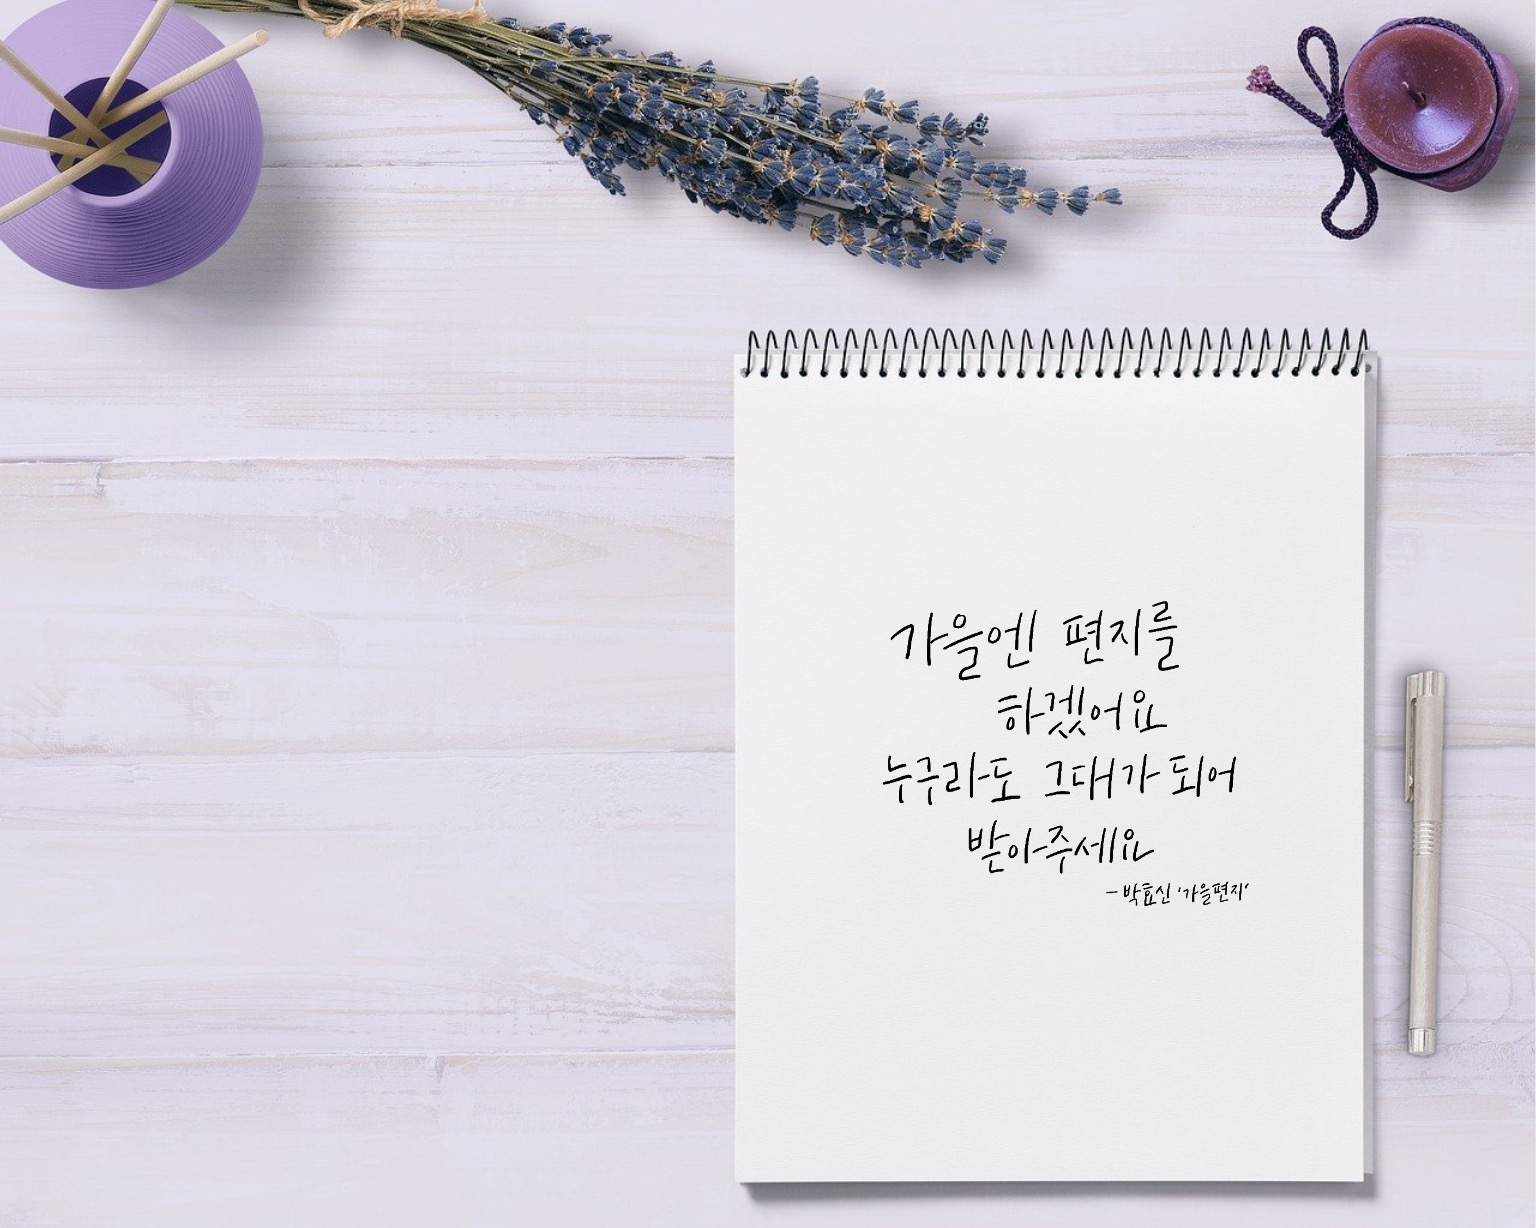 가을엔 편지를
하겠어요
누구라도 그대가 되어
받아주세요
- 박효신 '가을편지'